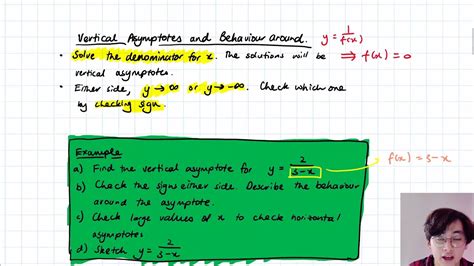 Vertical Asymptotes and Behaviour around. y = 1/f(x)
• Solve the denominator for x. The solutions will be ⇒ f(x) = 0
vertical asymptotes.
• Either side, y → ∞ or y → -∞. Check which one
by checking sign.
Example
a) Find the vertical asymptote for y = 2/(5-x)
f(x) = 5-x
b) Check the signs either side. Describe the behaviour
around the asymptote.
c) Check large values of x to check horizontal
asymptotes
d) Sketch y = 2/(5-x)